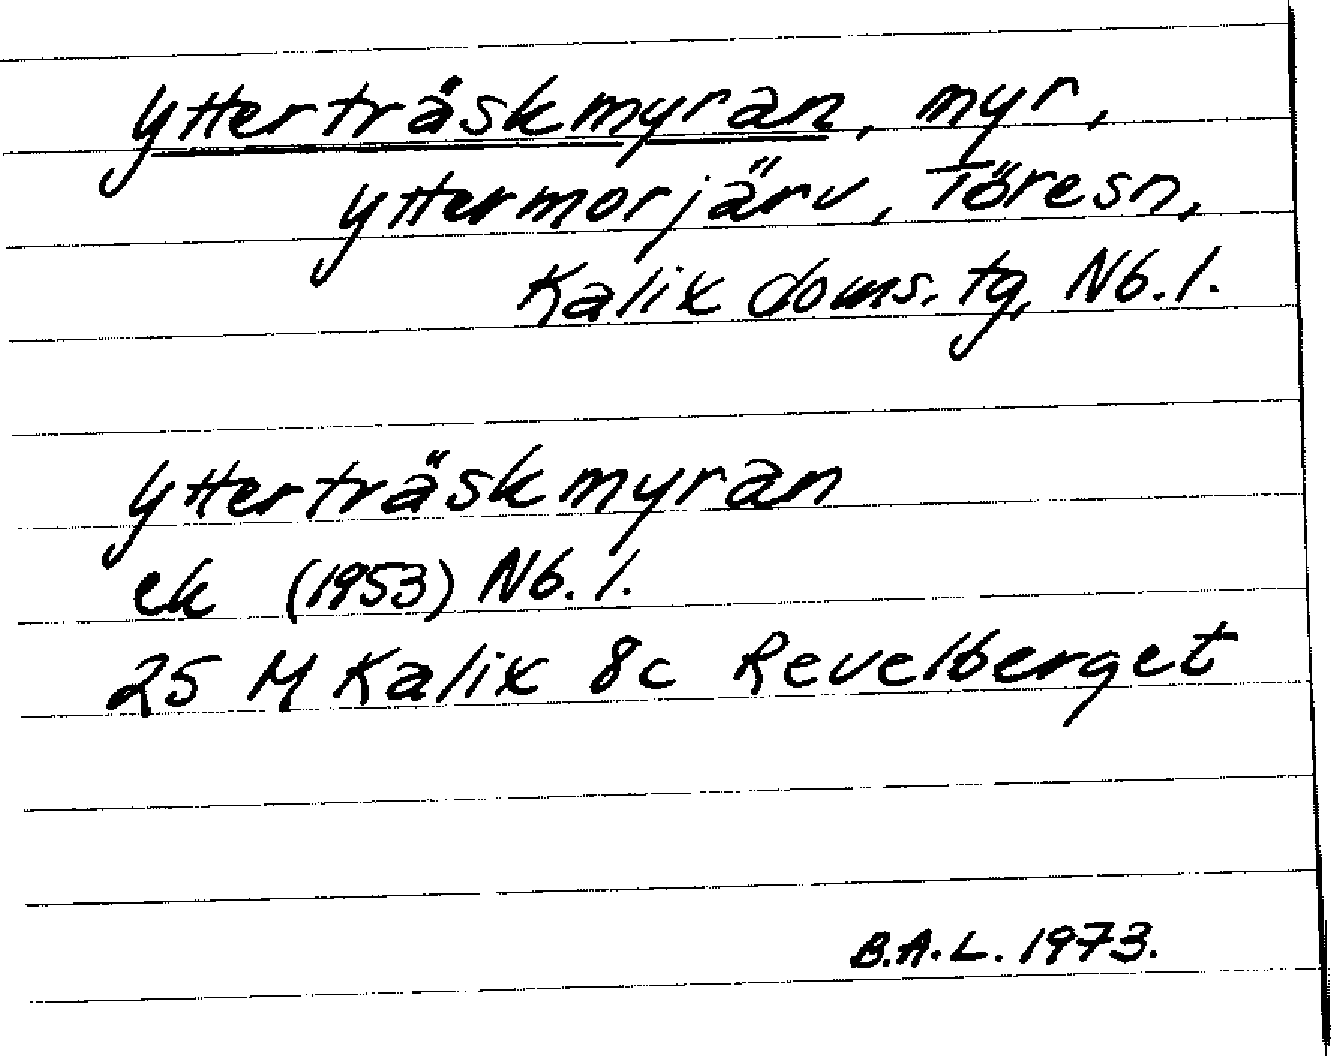 Ytterträskmyran, myr,
Yttermorjärv, Töresn,
Kalix doms. tg, Nb. l.
Ytterträskmyran
ek (1953) Nb. l.
25 M Kalix 8c Revelberget
B.A.L. 1973.